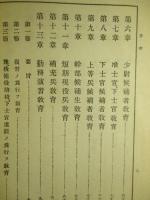 第六章 少尉候補者教育
第七章 准士官下士官教育
第八章 下士官候補者教育
第九章 上等兵候補者教育
第十章 幹部候補生教育
第十一章 短期現役兵教育
第十二章 補充兵教育
第十三章 勤務演習教育
第一節 要旨
第二節 復習ヲ爲行フ教育